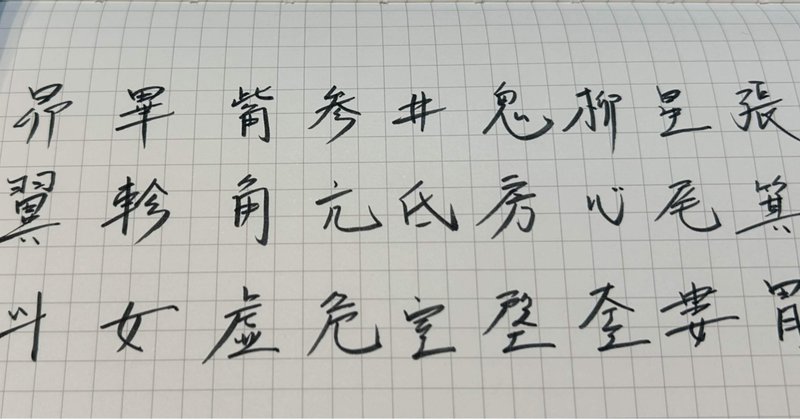 昴畢觜参井鬼柳星張
翼軫角亢氐房心尾箕
斗女虚危室壁奎婁胃